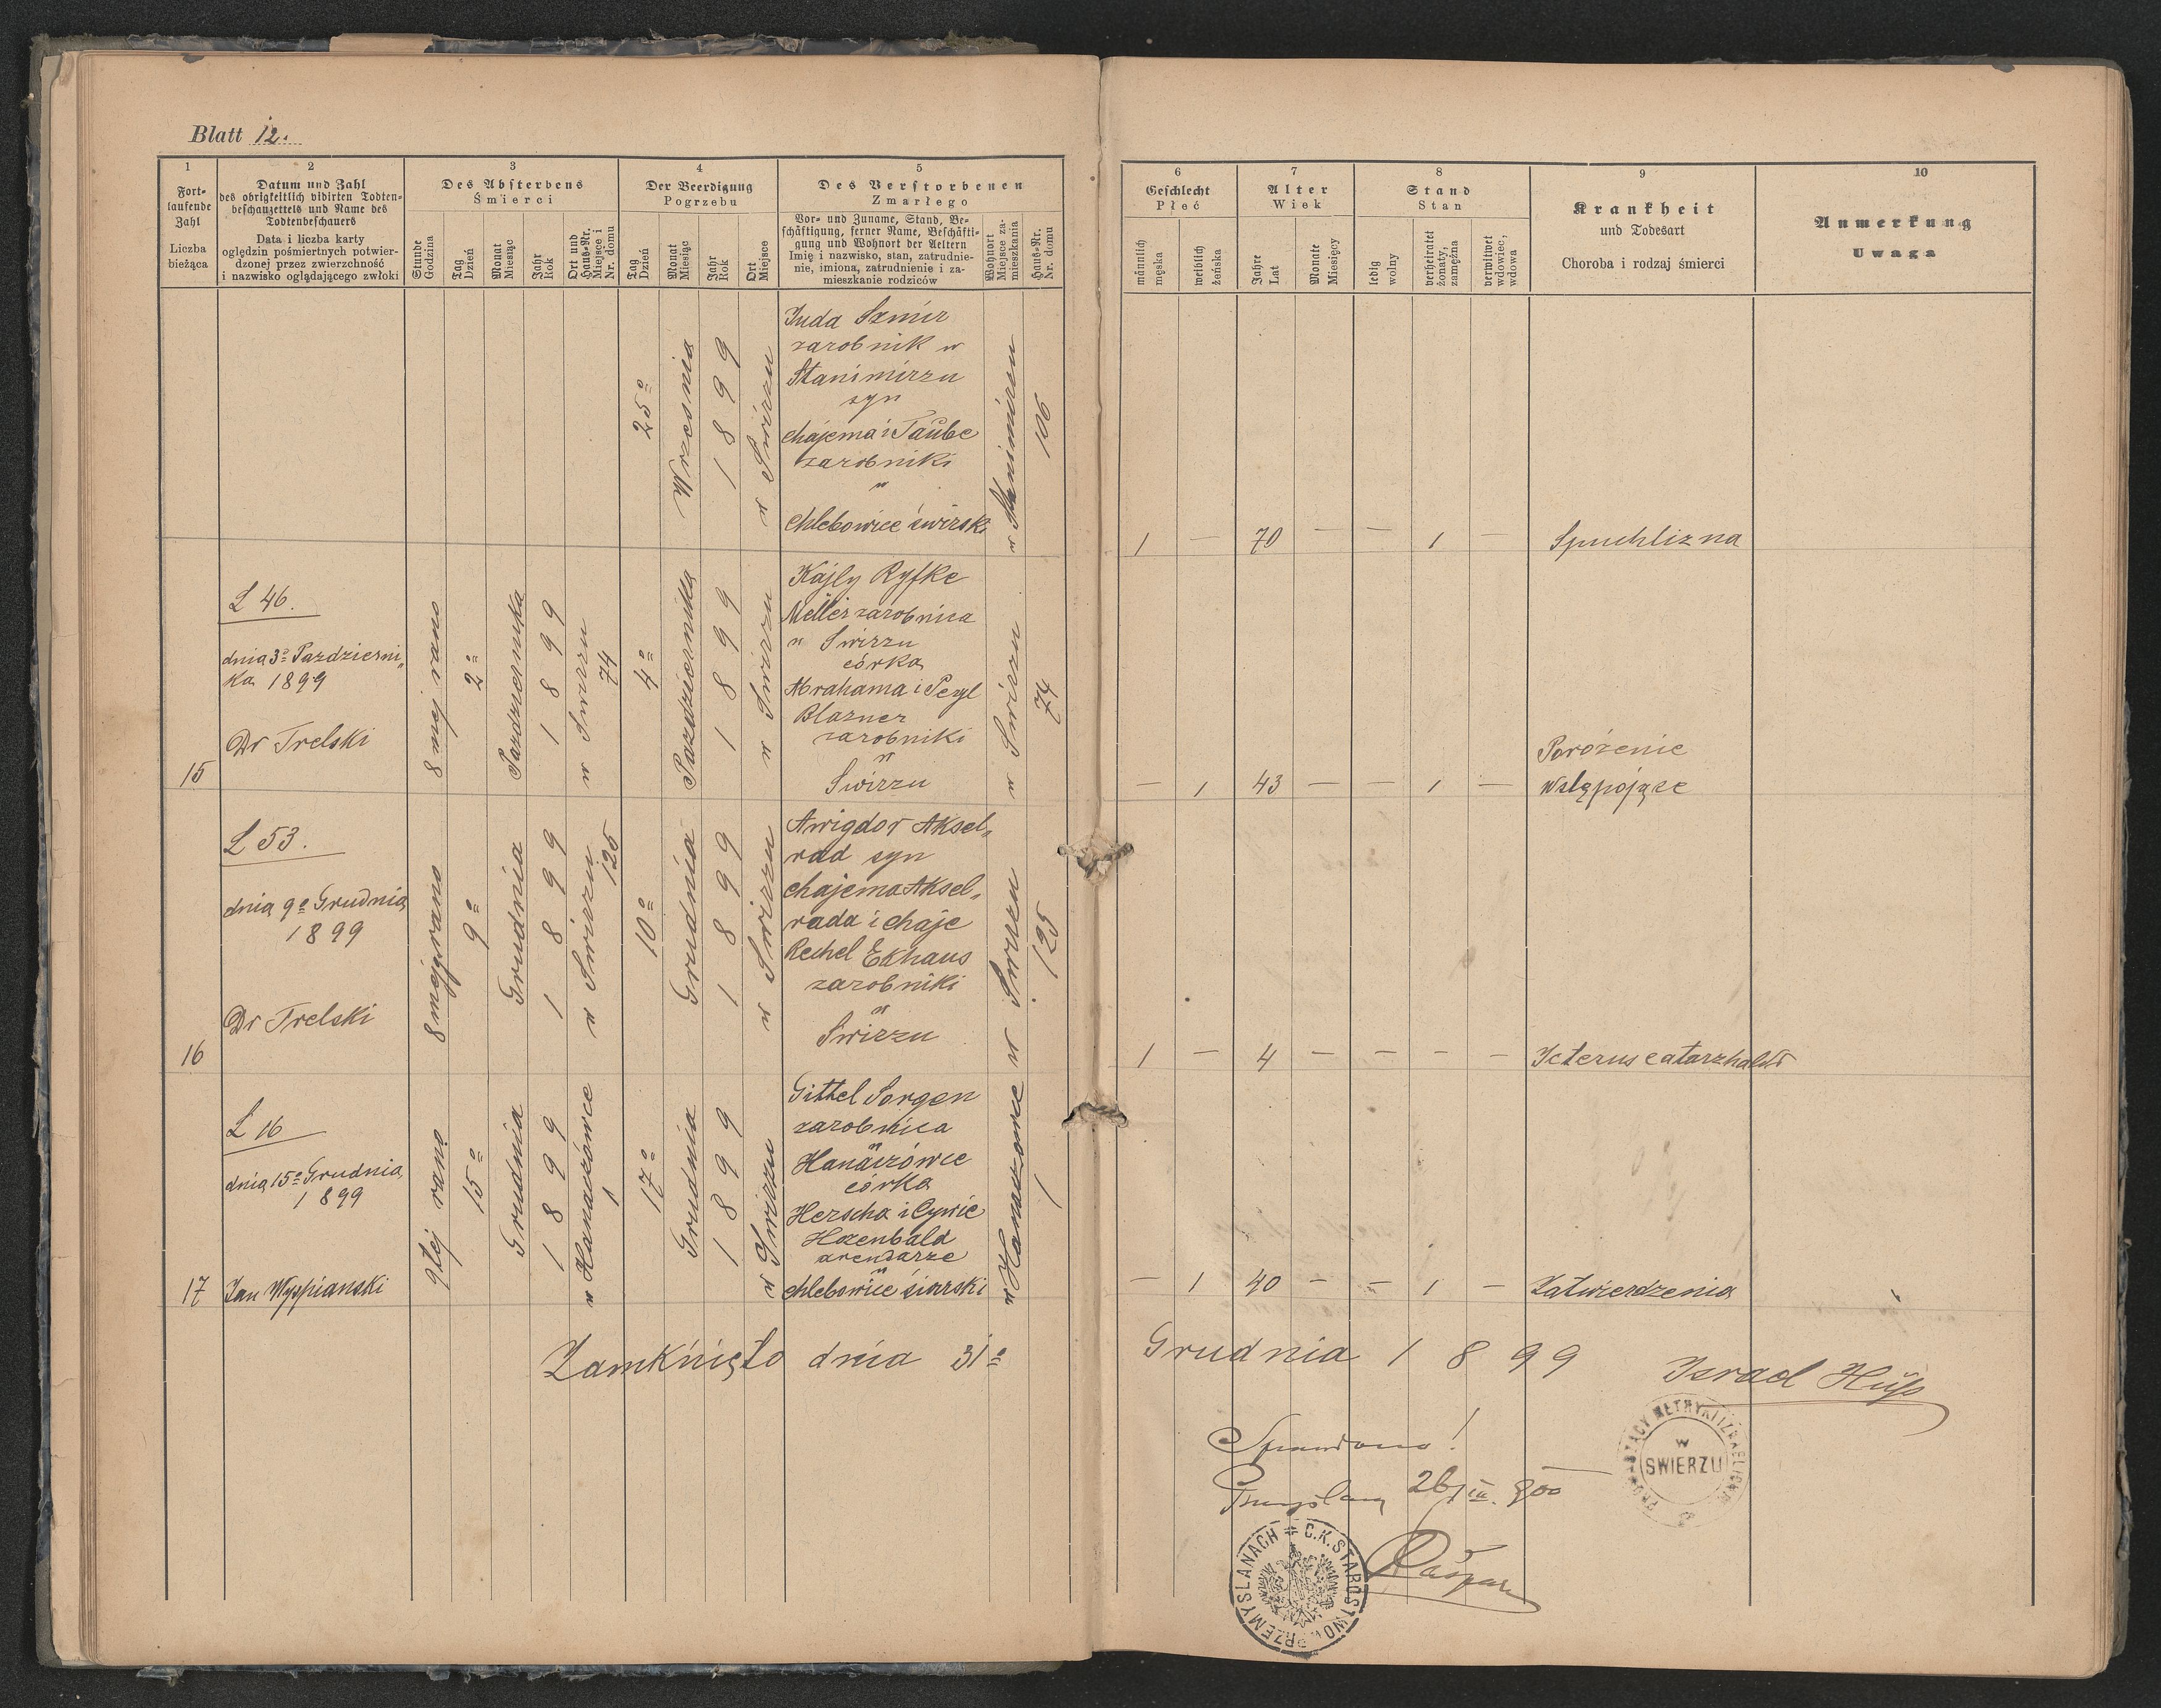 Blatt 12.
1
Fort-
laufende
Zahl
Liczba
bieżąca
2
Datum und Zahl
des obrigkeitlich vidirten Todten-
beschauzettels und Name des
Todtenbeschauers
Data i liczba karty
oględzin pośmiertnych potwier-
dzonej przez zwierzchność
i nazwisko oglądającego zwłoki
3
Des Absterbens
Śmierci
Stunde
Godzina
Tag
Dzień
Monat
Miesiąc
Jahr
Rok
Ort und
Haus-Nr.
Miejsce i
Nr. domu
4
Der Beerdigung
Pogrzebu
Tag
Dzień
Monat
Miesiąc
Jahr
Rok
Ort
Miejsce
5
Des Verstorbenen
Zmarłego
Vor- und Zuname, Stand, Be-
schäftigung, ferner Name, Beschäfti-
gung und Wohnort der Aeltern
Imię i nazwisko, stan, zatrudnie-
nie, imiona, zatrudnienie i za-
mieszkanie rodziców
Wohnort
Miejsce za-
mieszkania
Haus-Nr.
Nr. domu
6
Geschlecht
Płeć
männlich
męska
weiblich
żeńska
7
Alter
Wiek
Jahre
Lat
Monate
Miesięcy
8
Stand
Stan
ledig
wolny
verheiratet
żonaty,
zamężna
verwitwet
wdowiec,
wdowa
9
Krankheit
und Todesart
Choroba i rodzaj śmierci
10
Anmerkung
Uwaga
25º
Wrzesnia
1899
w Swirzu
Juda Szmir
zarobnik w
Stanimirzu
syn
Chajema i Taube
zarobniki
w
Chlebowice świrski
w Stanimirzu
106
1 — 70 — — 1 —
Spuchlizna
15
L 46.
dnia 3º Pazdzierni„
ka 1899
Dr Trelski
8 mej rano
2º
Pazdziernika
1899
w Swirzu
74
4º
Pazdziernika
1899
w Swirzu
Kajly Ryfke
Meller zarobnica
w Swirzu
córka
Abrahama i Perl
Blazner
zarobniki
w
Swirzu
w Swirzu
74
— 1 43 — — 1 —
Porożenie
wstępojące
16
L 53.
dnia 9º Grudnia
1899
Dr Trelski
8 mej rano
9º
Grudnia
1899
w Swirzu
125
10º
Grudnia
1899
w Swirzu
Awigdor Aksel„
rad syn
Chajema Aksel„
rada i Chaje
Rechel Ekhaus
zarobniki
w
Swirzu
w Swirzu
125
1 — 4 — — — —
Icterus catarrhalis
17
L 16
dnia 15º Grudnia
1899
Jan Wyspianski
9tej rano
15º
Grudnia
1899
w Hanaczówce
1
17º
Grudnia
1899
w Swirzu
Gittel Sorgen
zarobnica
w
Hanaczówce
córka
Herscha i Cywie
Hozenbald
arendarze
w
Chlebowice świrski
w Hanaczowce
1
— 1 40 — — 1 —
Zatwierdzenia
Zamknięto dnia 31º Grudnia 1899
Israel Hüss
W
SWIERZU
Sprawdzono!
Przemyślany 26/III. 900
C.K. STAROSTWO W PRZEMYSLANACH